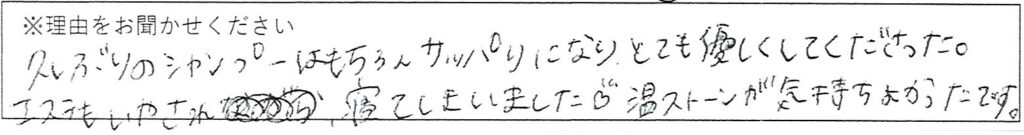 ※理由をお聞かせください
久しぶりのシャンプーはもちろんサッパリになり、とても優しくしてくださった。
エステもいやされ、寝てしまいましたが温ストーンが気持ちよかったです。